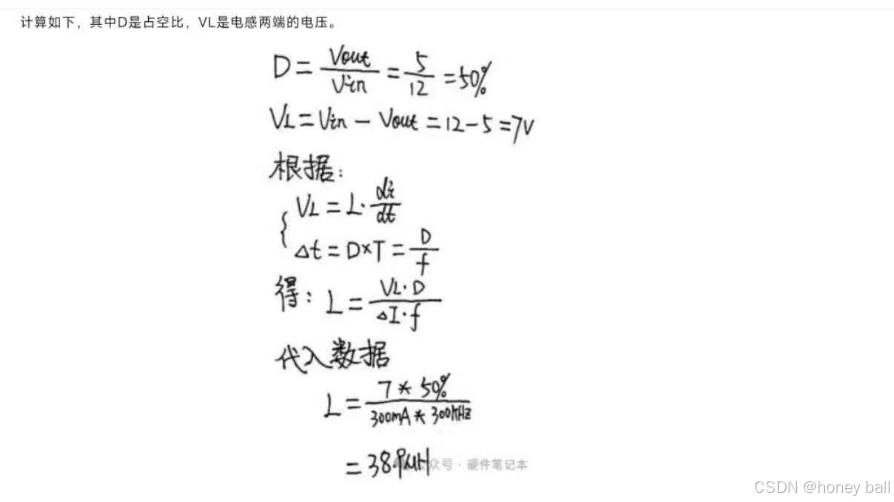 计算如下，其中D是占空比，VL是电感两端的电压。
D = Vout / Vin = 5 / 12 = 50%
VL = Vin - Vout = 12 - 5 = 7V
根据：
{ VL = L · di / dt
Δt = D × T = D / f
得：L = VL · D / ΔI · f
代入数据
L = 7 * 50% / 300mA * 300KHz
= 38.9μH
众号 · 硬件笔记本
CSDN @honey ball